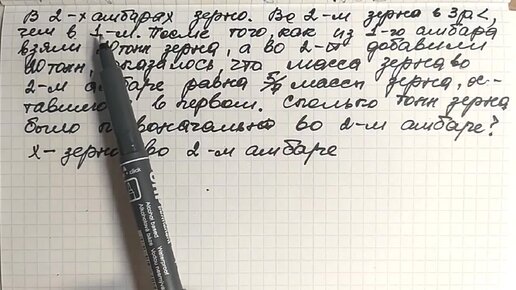 В 2-х амбарах зерно. Во 2-м зерна в 3р.<,
чем в 1-м. После того, как из 1-го амбара
взяли 20 тонн зерна, а во 2-ой добавили
20 тонн, оказалось, что масса зерна во
2-м амбаре равна 5/7 массы зерна, ос-
тавшего в первом. Сколько тонн зерна
было первоначально во 2-м амбаре?
x - зерна во 2-м амбаре
click
Alcohol based
Waterproof